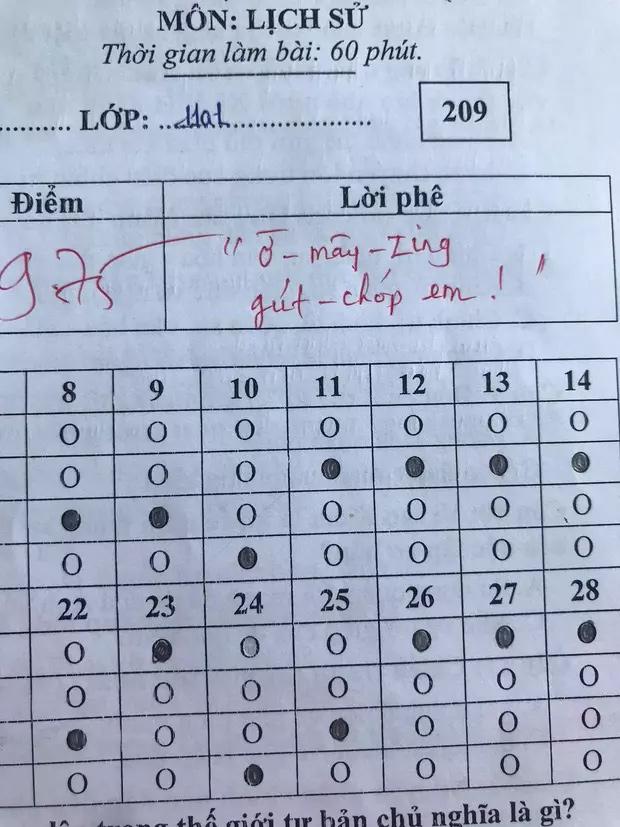 MÔN: LỊCH SỬ
Thời gian làm bài: 60 phút.
........... LỚP: ................................
209
Điểm Lời phê
9.75 "Ơ - mây - Zing
gút - chóp em! "
8 9 10 11 12 13 14
O O O O O O O
O O O
O O O O O
O O O O O O
22 23 24 25 26 27 28
O O O
O O O O O O O
O O O O O
O O O O O O
trong thế giới tư bản chủ nghĩa là gì?